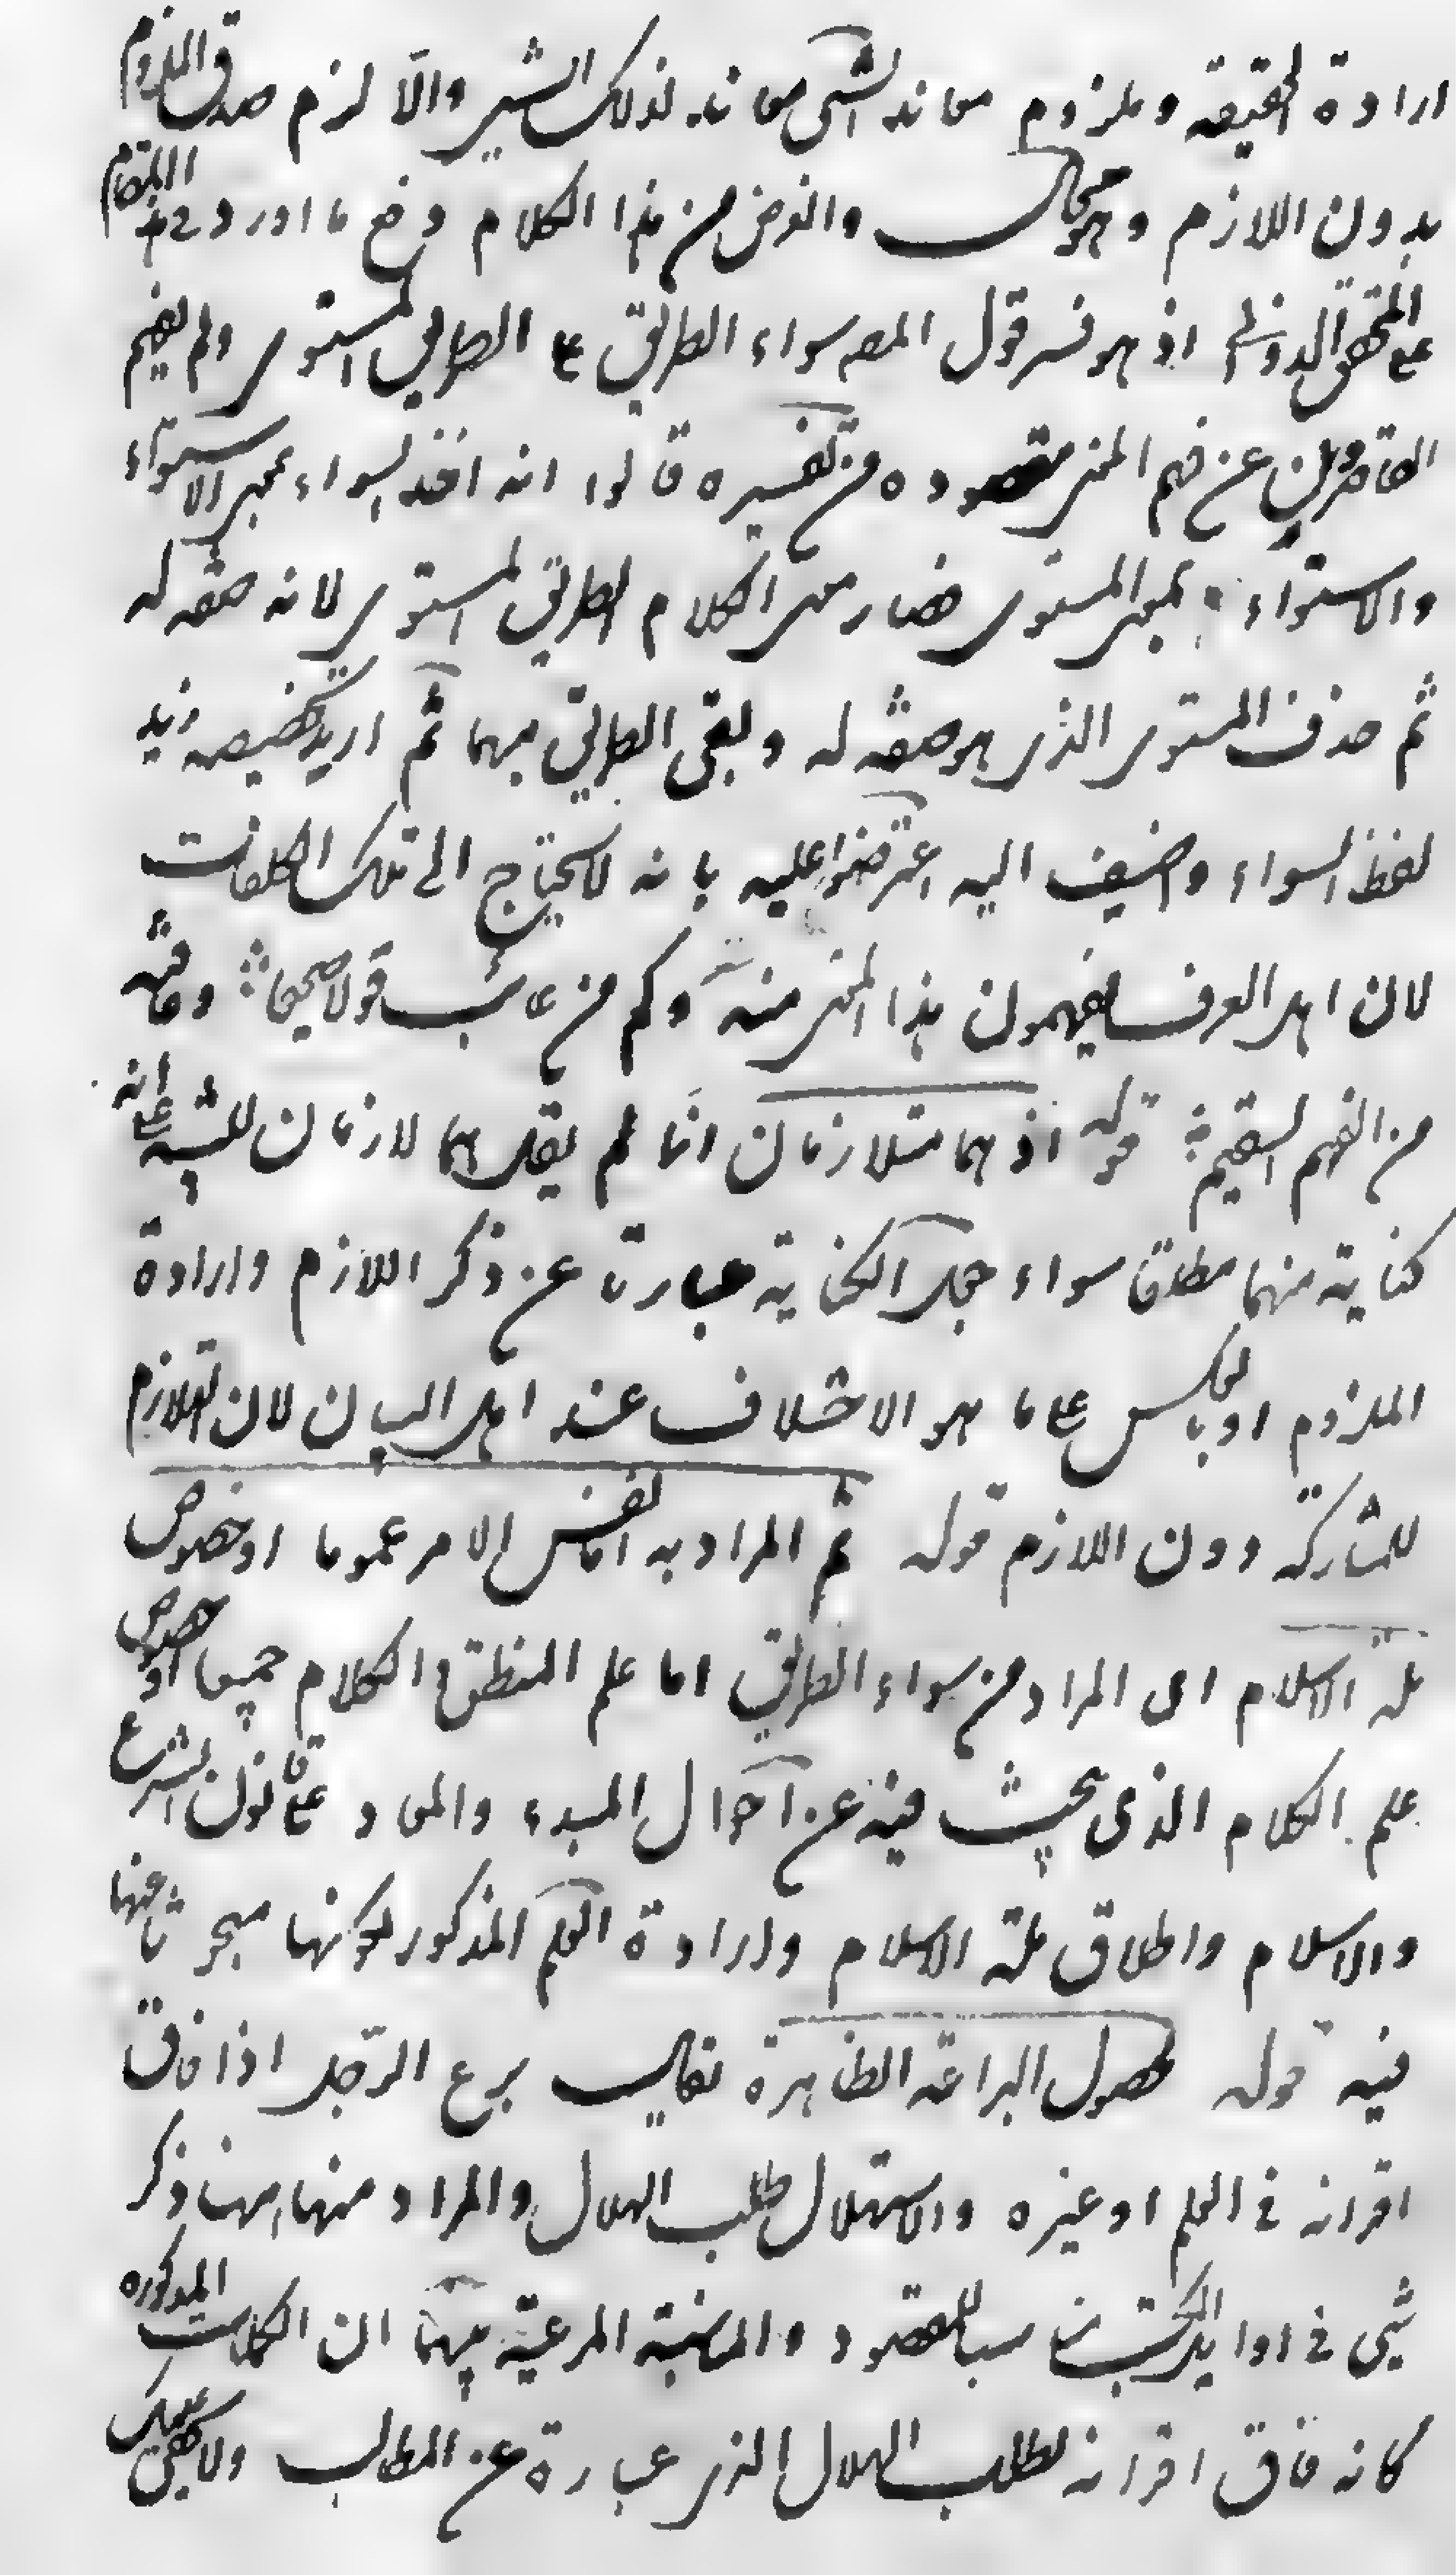 ارادة الحقيقة وملزوم معاند الشئ معاند لذلك الشئ والّا لزم صدق الملزوم
بدون اللازم وهو محال والغرض من هذا الكلام دفع ما اورد في هذا المقام
على المحقق الدوانى اذ هو فسر قول المصـ سواء الطريق على الطريق المستوى ولم يفهم
القاصرين عن فهم المعنى مقصوده من تفسيره قالوا انه اخذ السواء بمعنى الاستواء
والاستواء بمعنى المستوى فصار معنى الكلام الطريق المستوى لانه صفة له
ثم حذف المستوى الذى هو صفة له وبقى الطريق مبهما ثم اريد تخصيصه زيد
لفظ السواء واضيف اليه اعترضوا عليه بانه لا يحتاج الى تلك التكلفات
لان اهل العرف يفهمون هذا المعنى منه وكم من عائب قولا صحيحا وآفته
من الفهم السقيم قوله اذ هما متلازمان انّما لم يقل هما لازمان للتنبيه على انه
كناية منهما مطلقا سواء جعل الكناية عبارة عن ذكر اللازم وارادة
الملزوم او بالعكس على ما هو الاختلاف عند اهل البيان لان التلازم
للمشاركة دون اللازم قوله ثم المراد به اما نفس الامر عموما او خصوص
ملة الاسلام اى المراد من سواء الطريق اما علم المنطق والكلام جميعا او خصوص
علم الكلام الذى يبحث فيه عن احوال المبدء والمعاد على قانون الشرع
والاسلام واطلاق ملة الاسلام وارادة العلم المذكور لكونها مبحوثا عنها
فيه قوله لحصول البراعة الظاهرة يقال برع الرجل اذا فاق
اقرانه فى العلم او غيره والاستهلال طلب الهلال والمراد منها ههنا ذكر
شئ فى اوائل الكتب مناسبا للمقصود والمناسبة المرعية بينهما ان الكلمات المذكورة
كانه فاق اقرانه لطلب الهلال الذى عبارة عن المطالب ولا يخفى عليك